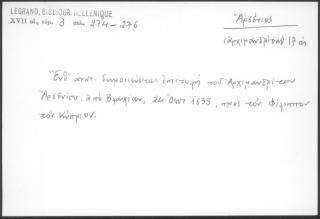 LEGRAND, BIBLIOGR. HELLENIQUE
XVII αἰ, τόμ. 3 σελ. 274-276
Ἀρσένιος
(ἀρχιμανδρίτης) 17 αἰ.
Ἔνθ' ἀνωτ. δημοσιεύεται ἐπιστολὴ τοῦ Ἀρχιμανδρίτου
Ἀρσενίου ἀπὸ Βλαχίαν, 24 Ὀκτ. 1633, πρὸς τὸν Φίλιππον
τὸν Κύπριον.